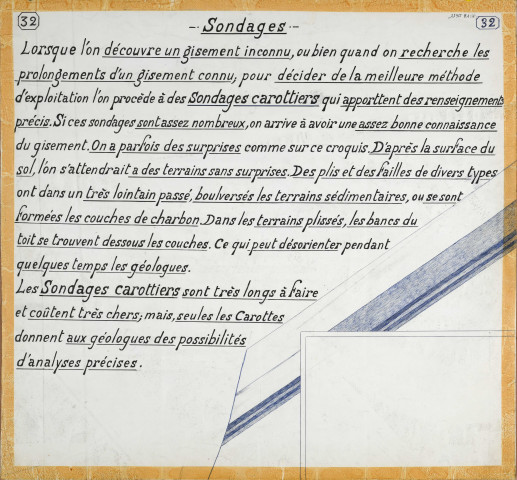 32
-- Sondages --
32
Lorsque l'on découvre un gisement inconnu, ou bien quand on recherche les
prolongements d'un gisement connu, pour décider de la meilleure méthode
d'exploitation l'on procède à des Sondages carottiers qui apporttent des renseignements
précis. Si ces sondages sont assez nombreux, on arrive à avoir une assez bonne connaissance
du gisement. On a parfois des surprises comme sur ce croquis. D'après la surface du
sol, l'on s'attendrait a des terrains sans surprises. Des plis et des failles de divers types
ont dans un très lointain passé, boulversés les terrains sédimentaires, ou se sont
formées les couches de charbon. Dans les terrains plissés, les bancs du
toit se trouvent dessous les couches. Ce qui peut désorienter pendant
quelques temps les géologues.
Les Sondages carottiers sont très longs à faire
et coûtent très chers; mais, seules les Carottes
donnent aux géologues des possibilités
d'analyses précises.